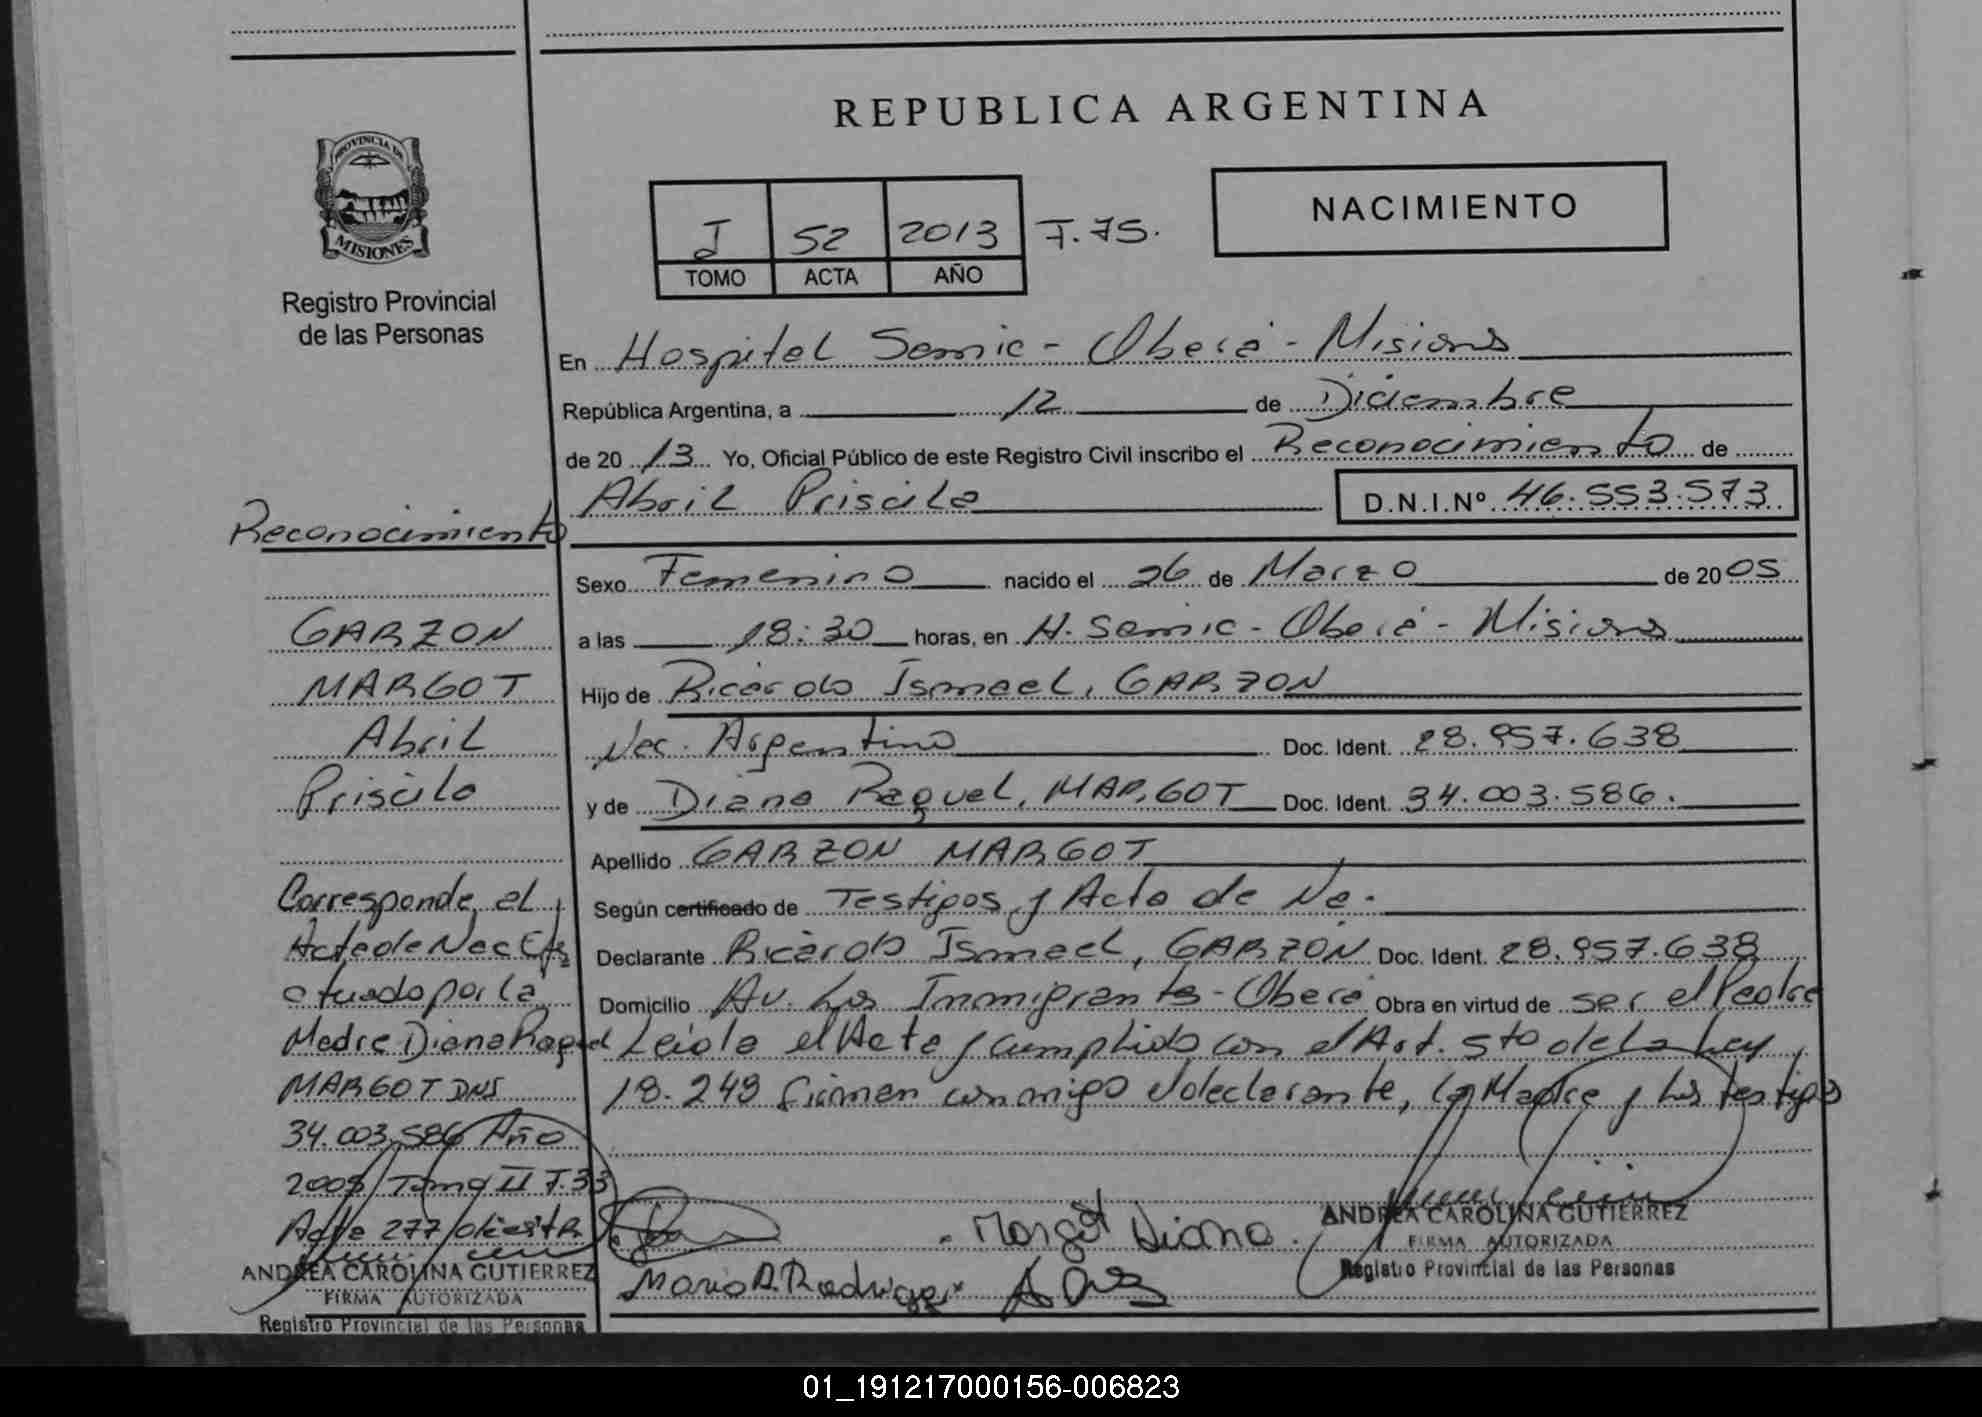 REPUBLICA ARGENTINA
PROVINCIA DE
MISIONES
Registro Provincial
de las Personas
I 52 2013 F. 75.
TOMO ACTA AÑO
NACIMIENTO
En Hospital Samic - Oberá - Misiones
República Argentina, a 12 de Diciembre
de 20 13 Yo, Oficial Público de este Registro Civil inscribo el Reconocimiento de
Abril Priscila D.N.I.Nº 46.553.573
Sexo Femenino nacido el 26 de Marzo de 20 05
a las 18:30 horas, en H. Samic - Oberá - Misiones
Hijo de Ricardo Ismael, GARZON
Nac. Argentino Doc. Ident. 28.957.638
y de Diana Raquel, MARGOT Doc. Ident. 34.003.586.
Apellido GARZON MARGOT
Según certificado de Testigos y Acta de Na.
Declarante Ricardo Ismael, GARZON Doc. Ident. 28.957.638
Domicilio Av. Los Inmigrantes - Oberá Obra en virtud de ser el Padre
Leída el Acta y cumplido con el Art. 5to de la Ley
18.248 firman conmigo el declarante, la Madre y los testigos
Margot Diana.
Mario R. Rodriguez
ANDREA CAROLINA GUTIERREZ
FIRMA AUTORIZADA
Registro Provincial de las Personas
Reconocimiento
GARZON
MARGOT
Abril
Priscila
Corresponde al
Acta de Nac Ef
ctuado por la
Madre Diana Raquel
MARGOT DNI
34.003.586 Año
2005 Tomo II F.33
Acta 277
ANDREA CAROLINA GUTIERREZ
FIRMA AUTORIZADA
Registro Provincial de las Personas
01_191217000156-006823